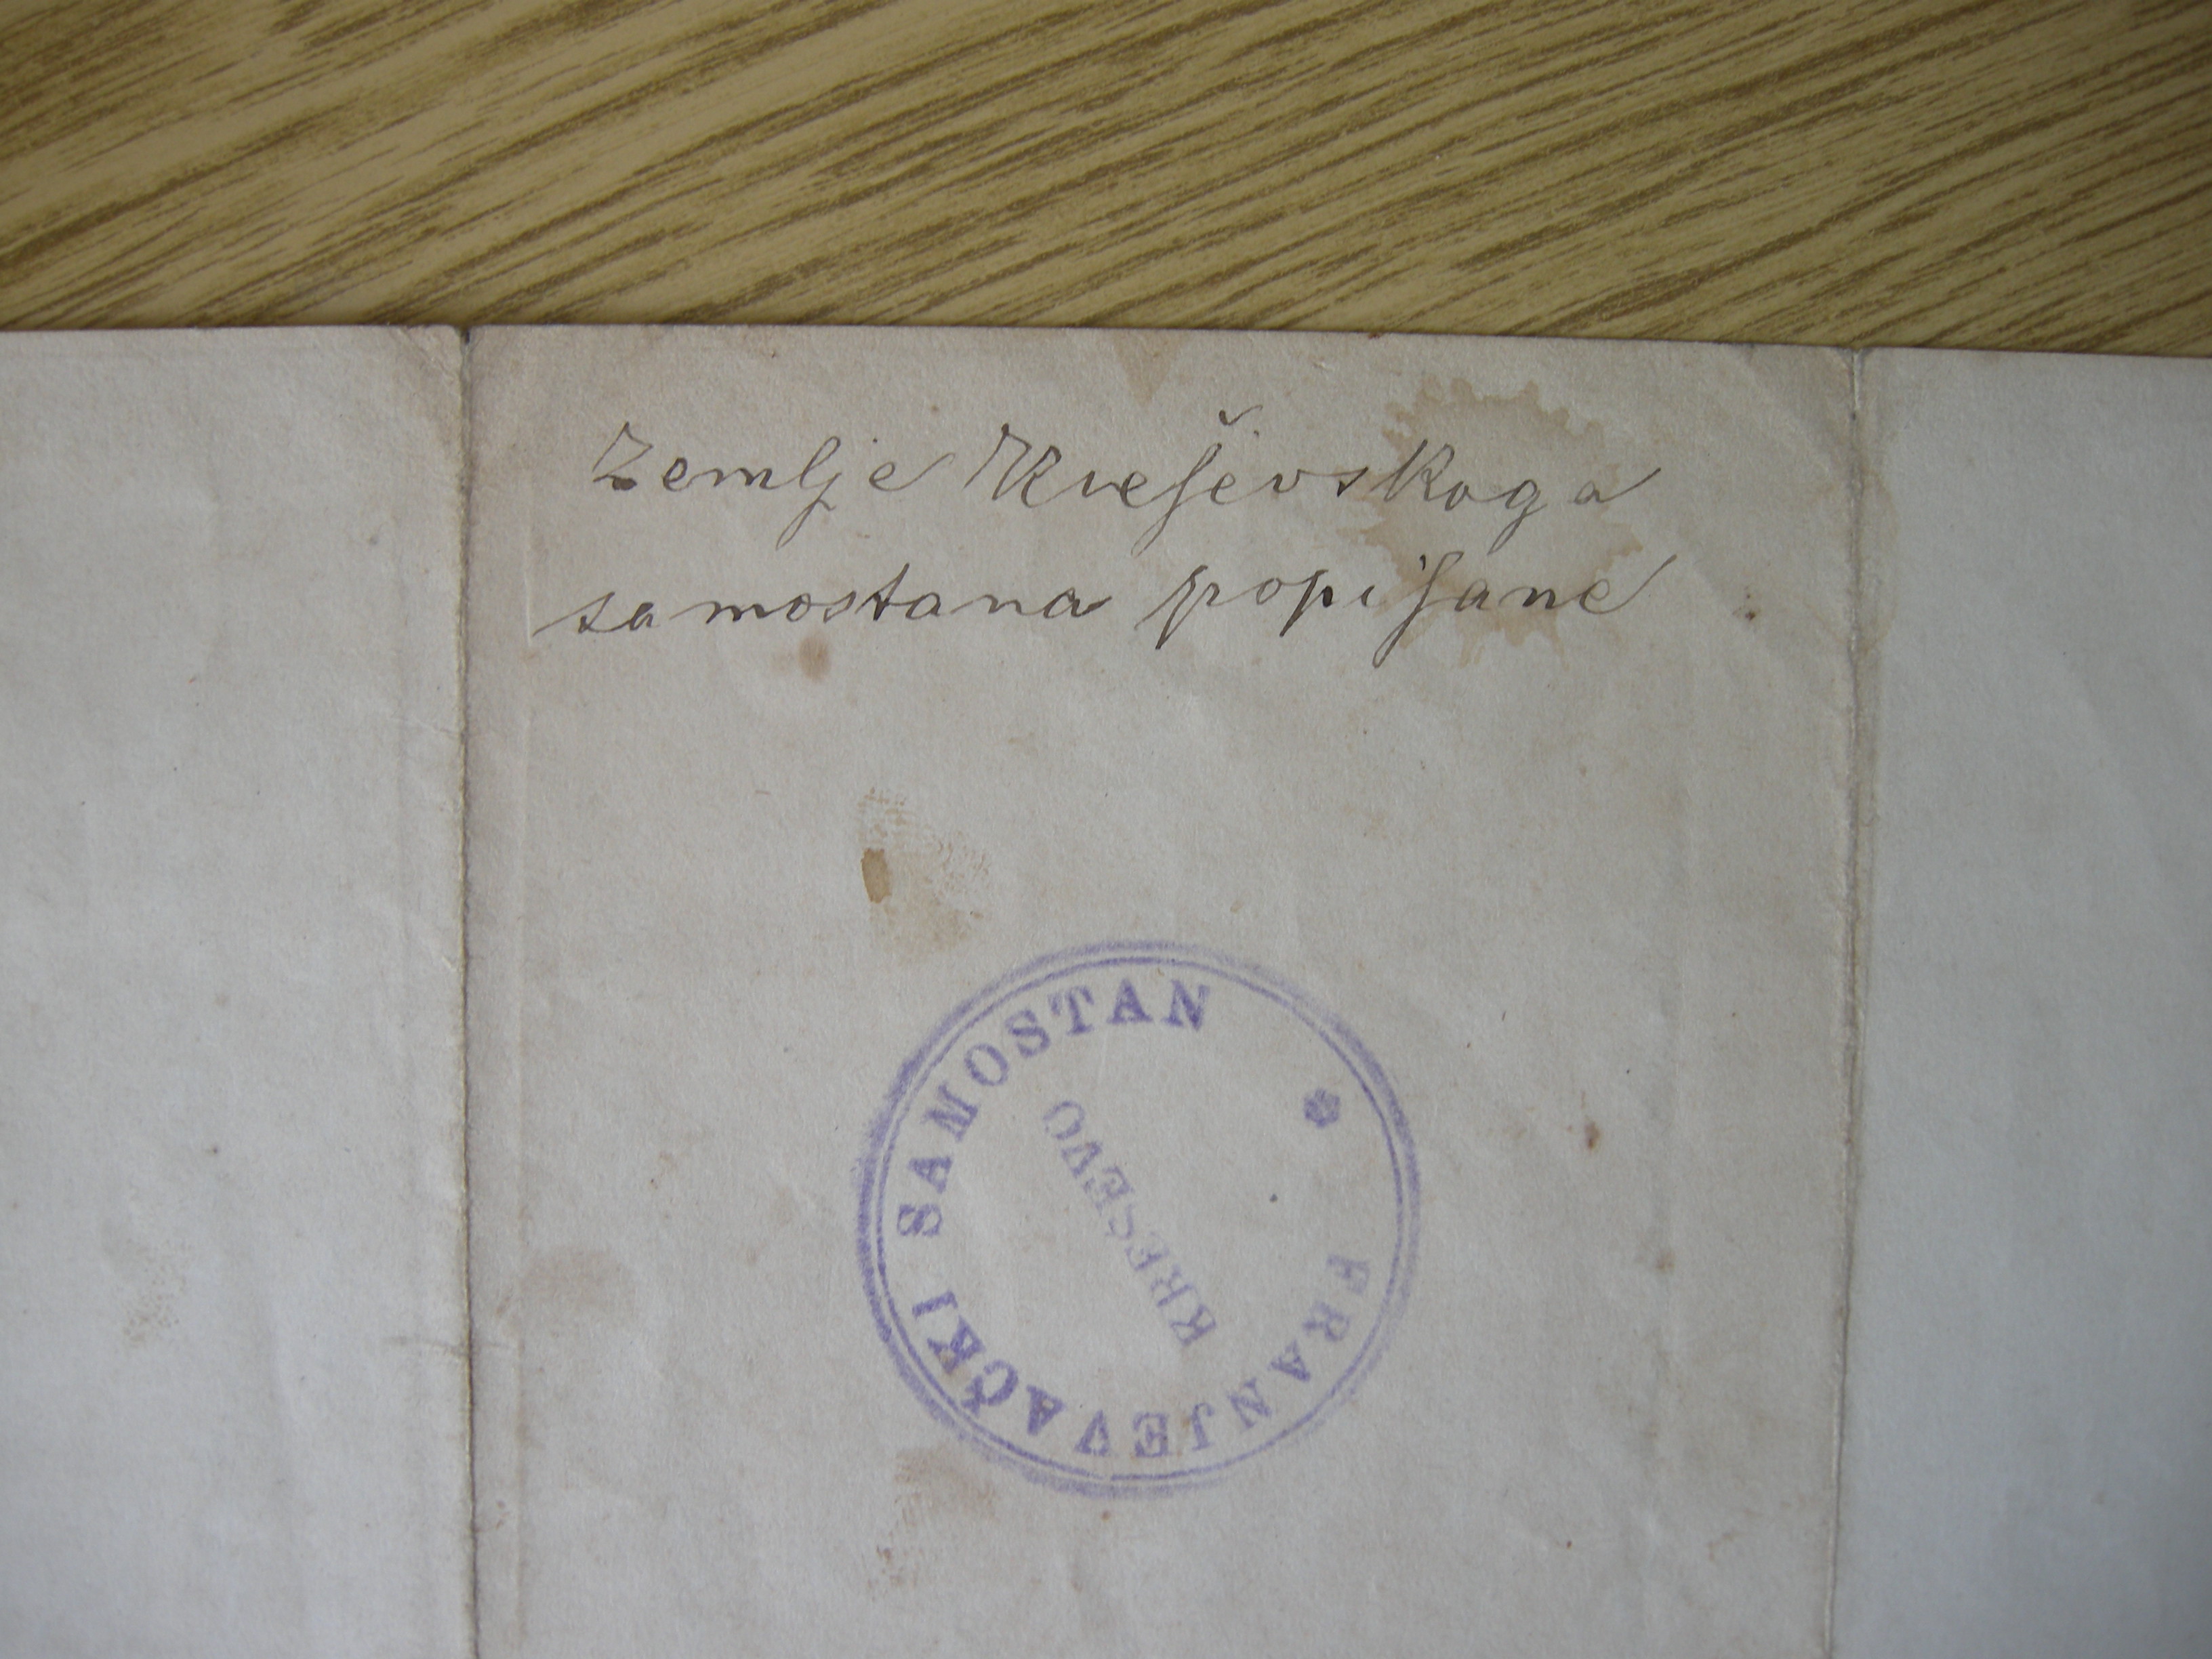 Zemlje Kreševskoga
samostana popisane
FRANJEVAČKI SAMOSTAN
KREŠEVO